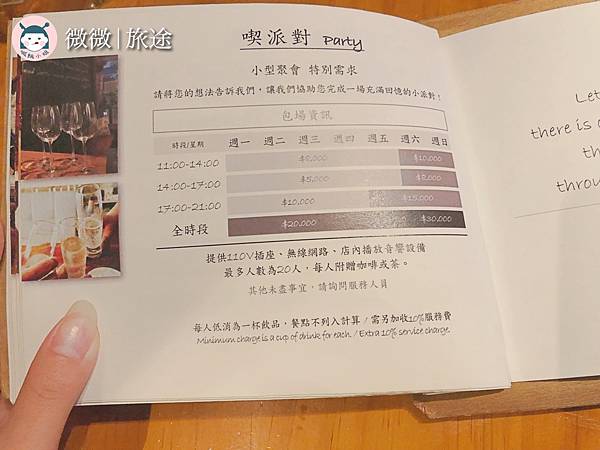 微微|旅途
喫派對 Party
小型聚會 特別需求
請將您的想法告訴我們，讓我們協助您完成一場充滿回憶的小派對！
包場資訊
時段/星期 週一 週二 週三 週四 週五 週六 週日
11:00-14:00 $8,000 $10,000
14:00-17:00 $5,000 $8,000
17:00-21:00 $10,000 $15,000
全時段 $20,000 $30,000
提供110V插座、無線網路、店內播放音響設備
最多人數為20人，每人附贈咖啡或茶。
其他未盡事宜，請詢問服務人員
每人低消為一杯飲品，餐點不列入計算 / 需另加收10%服務費
Minimum charge is a cup of drink for each. / Extra 10% service charge.
Let
there is a
th
throu